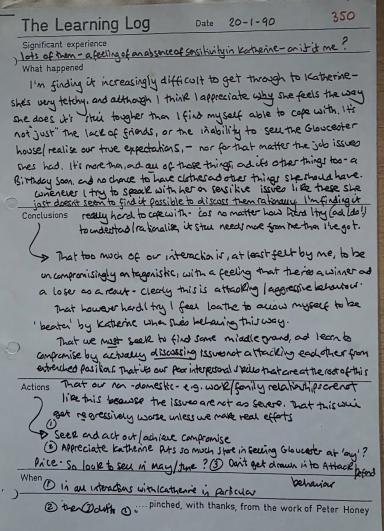 The Learning Log Date 20-1-90 350
Significant experience
) lots of them - a feeling of an absence of sensitivity in Katherine - or is it me?
What happened
I'm finding it increasingly difficult to get through to Katherine -
she's very tetchy, and although I think I appreciate why she feels the way
she does it's tougher than I find myself able to cope with. It's
not "just" the lack of friends, or the inability to sell the Gloucester
house/realise our true expectations, - nor for that matter the job issues
she had. It's more than and all of those things and its other things too - a
Birthday soon, and no chance to have clothes and other things she should have.
Whenever I try to speak with her on sensitive issues like these she
just doesn't seem to find it possible to discuss them rationally. I'm finding it
Conclusions really hard to cope with - cos no matter how hard I try (and I do!)
to understand/rationalise, it still needs more from me than I've got.
That too much of our interaction is, at least felt by me, to be
uncompromisingly antagonistic, with a feeling that there's a winner and
a loser as a result - clearly this is attacking/aggressive behaviour.
That however hard I try I feel loathe to allow myself to be
'beaten' by Katherine when she's behaving this way.
That we must seek to find some middle ground, and learn to
compromise by actually discussing issues not attacking each other from
entrenched positions. That it's our poor interpersonal skills that are at the root of this
Actions That our non-domestic - e.g. work/family relationships are not
like this because the issues are not so severe. That this will
get regressively worse unless we make real efforts
① Seek and act out/achieve compromise
② Appreciate Katherine puts so much store in selling Gloucester at 'any'
Price - So look to sell in May/June? ③ Don't get drawn into Attack Defend
When behaviour
① In all interactions with Katherine in particular
② then ① ....pinched, with thanks, from the work of Peter Honey